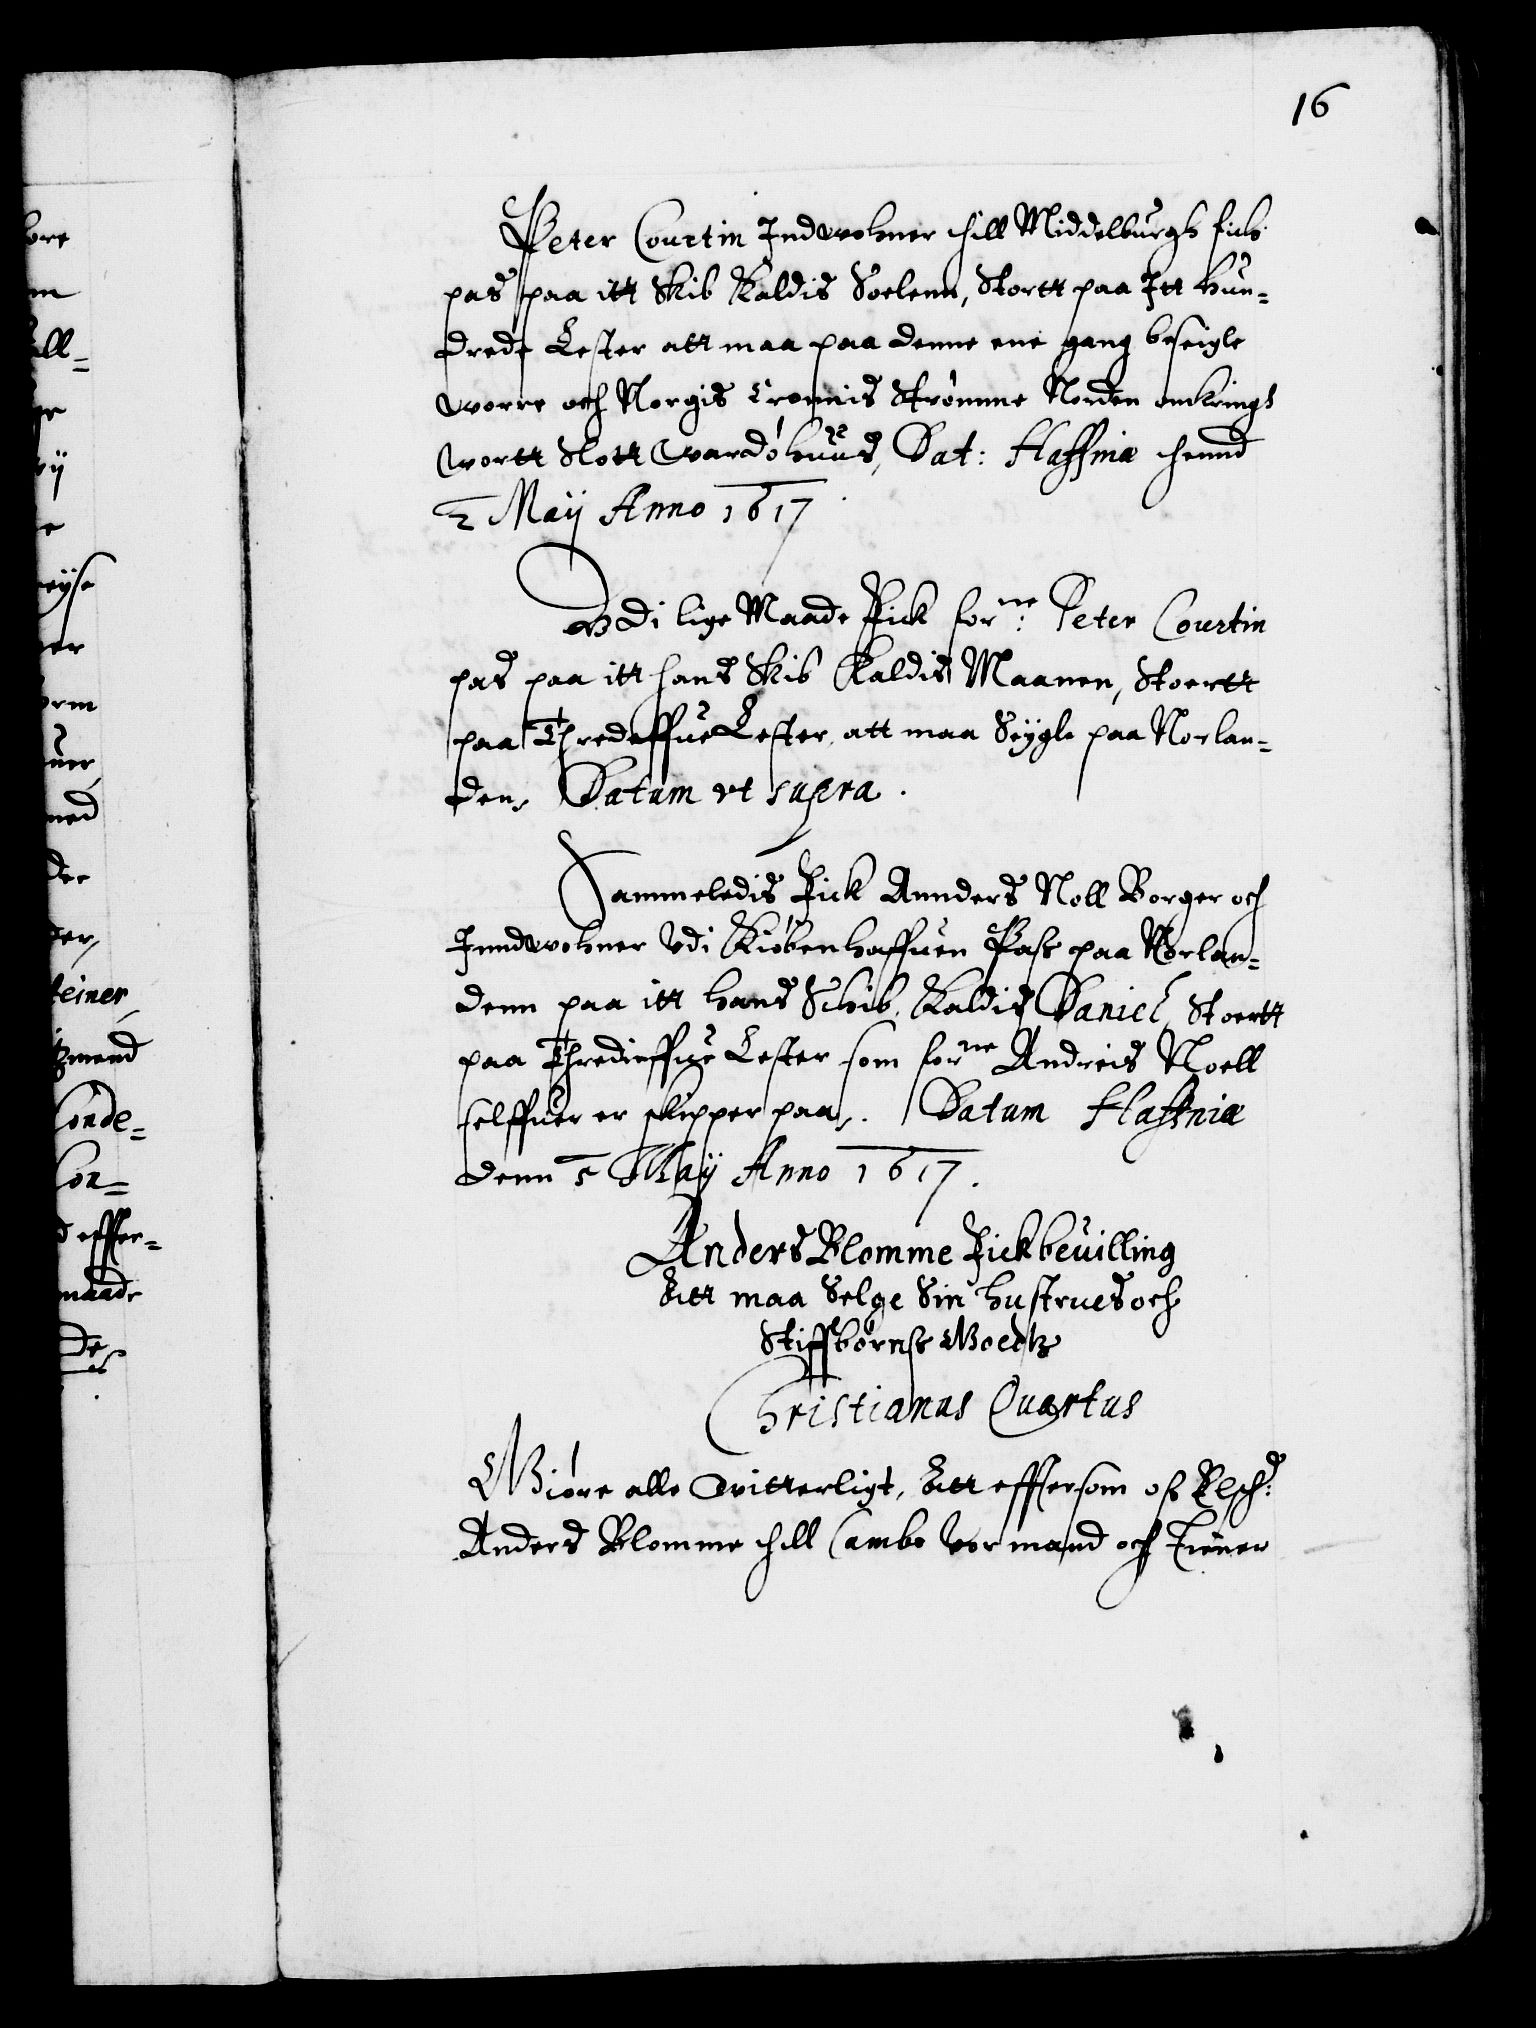 16
Peter Courtin Indwohner thill Middelburgh fick
pas paa itt Skib Kaldis Soelenn, Stortt paa Itt hun-
drede Lester att maa paa denne ene gang beseigle
worre och Norgis Cronnis Strømme Norden omkring
wortt Slott Wardøhuus, Dat: Haffniæ thennd
2 Maij Anno 1617
Vdi lige Maade Fick forne: Peter Courtin
pas paa itt hans Skib Kaldis Maanen, Stoertt
paa Thredeffue Lester, att maa Seygle paa Norlan-
den, Datum vt supra.
Sammeledis Fick Annders Noll Borger och
Inndwohner Vdi Kiøbenhaffuen Pass paa Norlan-
denn paa itt hans Schib, Kaldis Daniel, Stoertt
paa Thredieffue Lester som forne Andreis Noell
selffuer er skipper paa, Datum Haffniæ
denn 5 Maij Anno 1617.
Anders Blomme Fick beuilling
Att maa Selge Sin hustrues och
Stiffbørns Goedtz
Christianus Quartus
Giøre alle Vitterligt, Att effttersom oss Elsch:
Anders Blomme thill Cambo Vor mand och Tiener
ore
m
all-
ge
vij
e
reyse
ner
orm
uer,
med
der
der,
teiner,
tzmend
Conde-
Con-
d effter-
maade
de